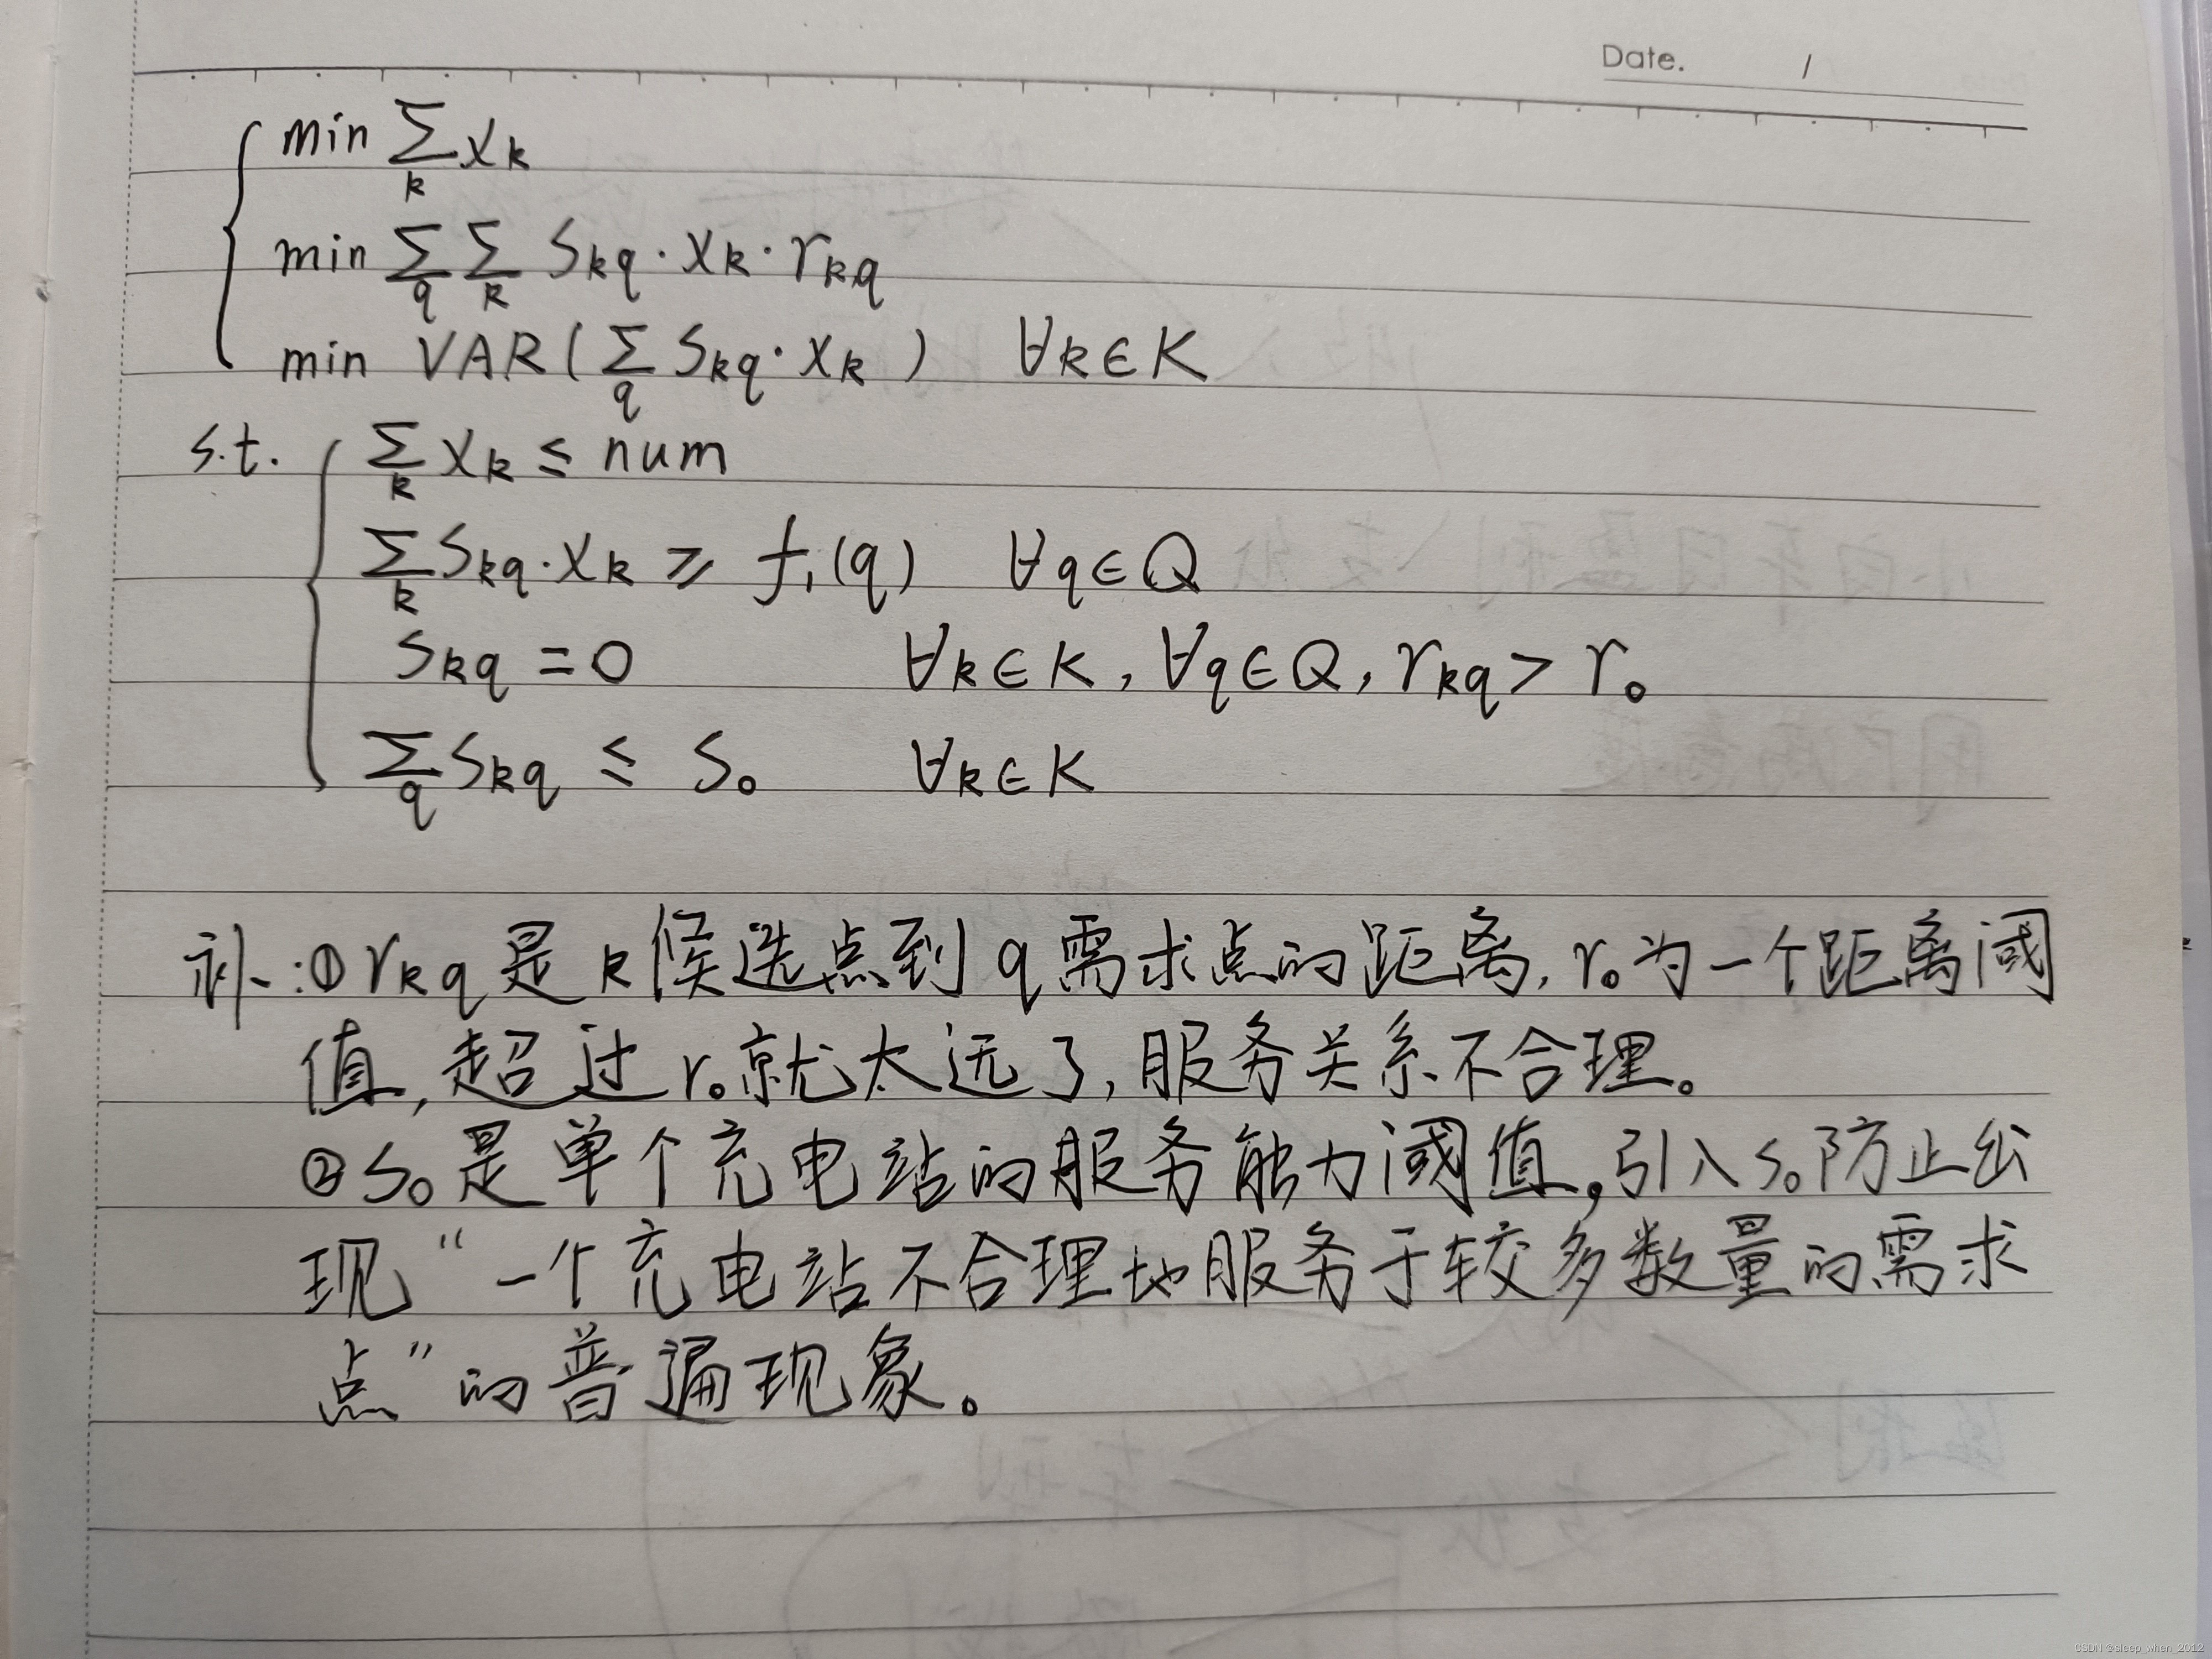 Date. /
min ∑_k x_k
min ∑_q ∑_k S_kq · x_k · r_kq
min VAR(∑_q S_kq · x_k) ∀k∈K
s.t. ∑_k x_k ≤ num
∑_k S_kq · x_k ≥ f_1(q) ∀q∈Q
S_kq = 0 ∀k∈K, ∀q∈Q, r_kq > r_0
∑_q S_kq ≤ S_0 ∀k∈K
补:① r_kq 是 k 候选点到 q 需求点的距离, r_0 为一个距离阈
值, 超过 r_0 就太远了, 服务关系不合理。
② S_0 是单个充电站的服务能力阈值, 引入 S_0 防止出
现 “一个充电站不合理地服务于较多数量的需求
点” 的普遍现象。
CSDN @sleep_when_2012